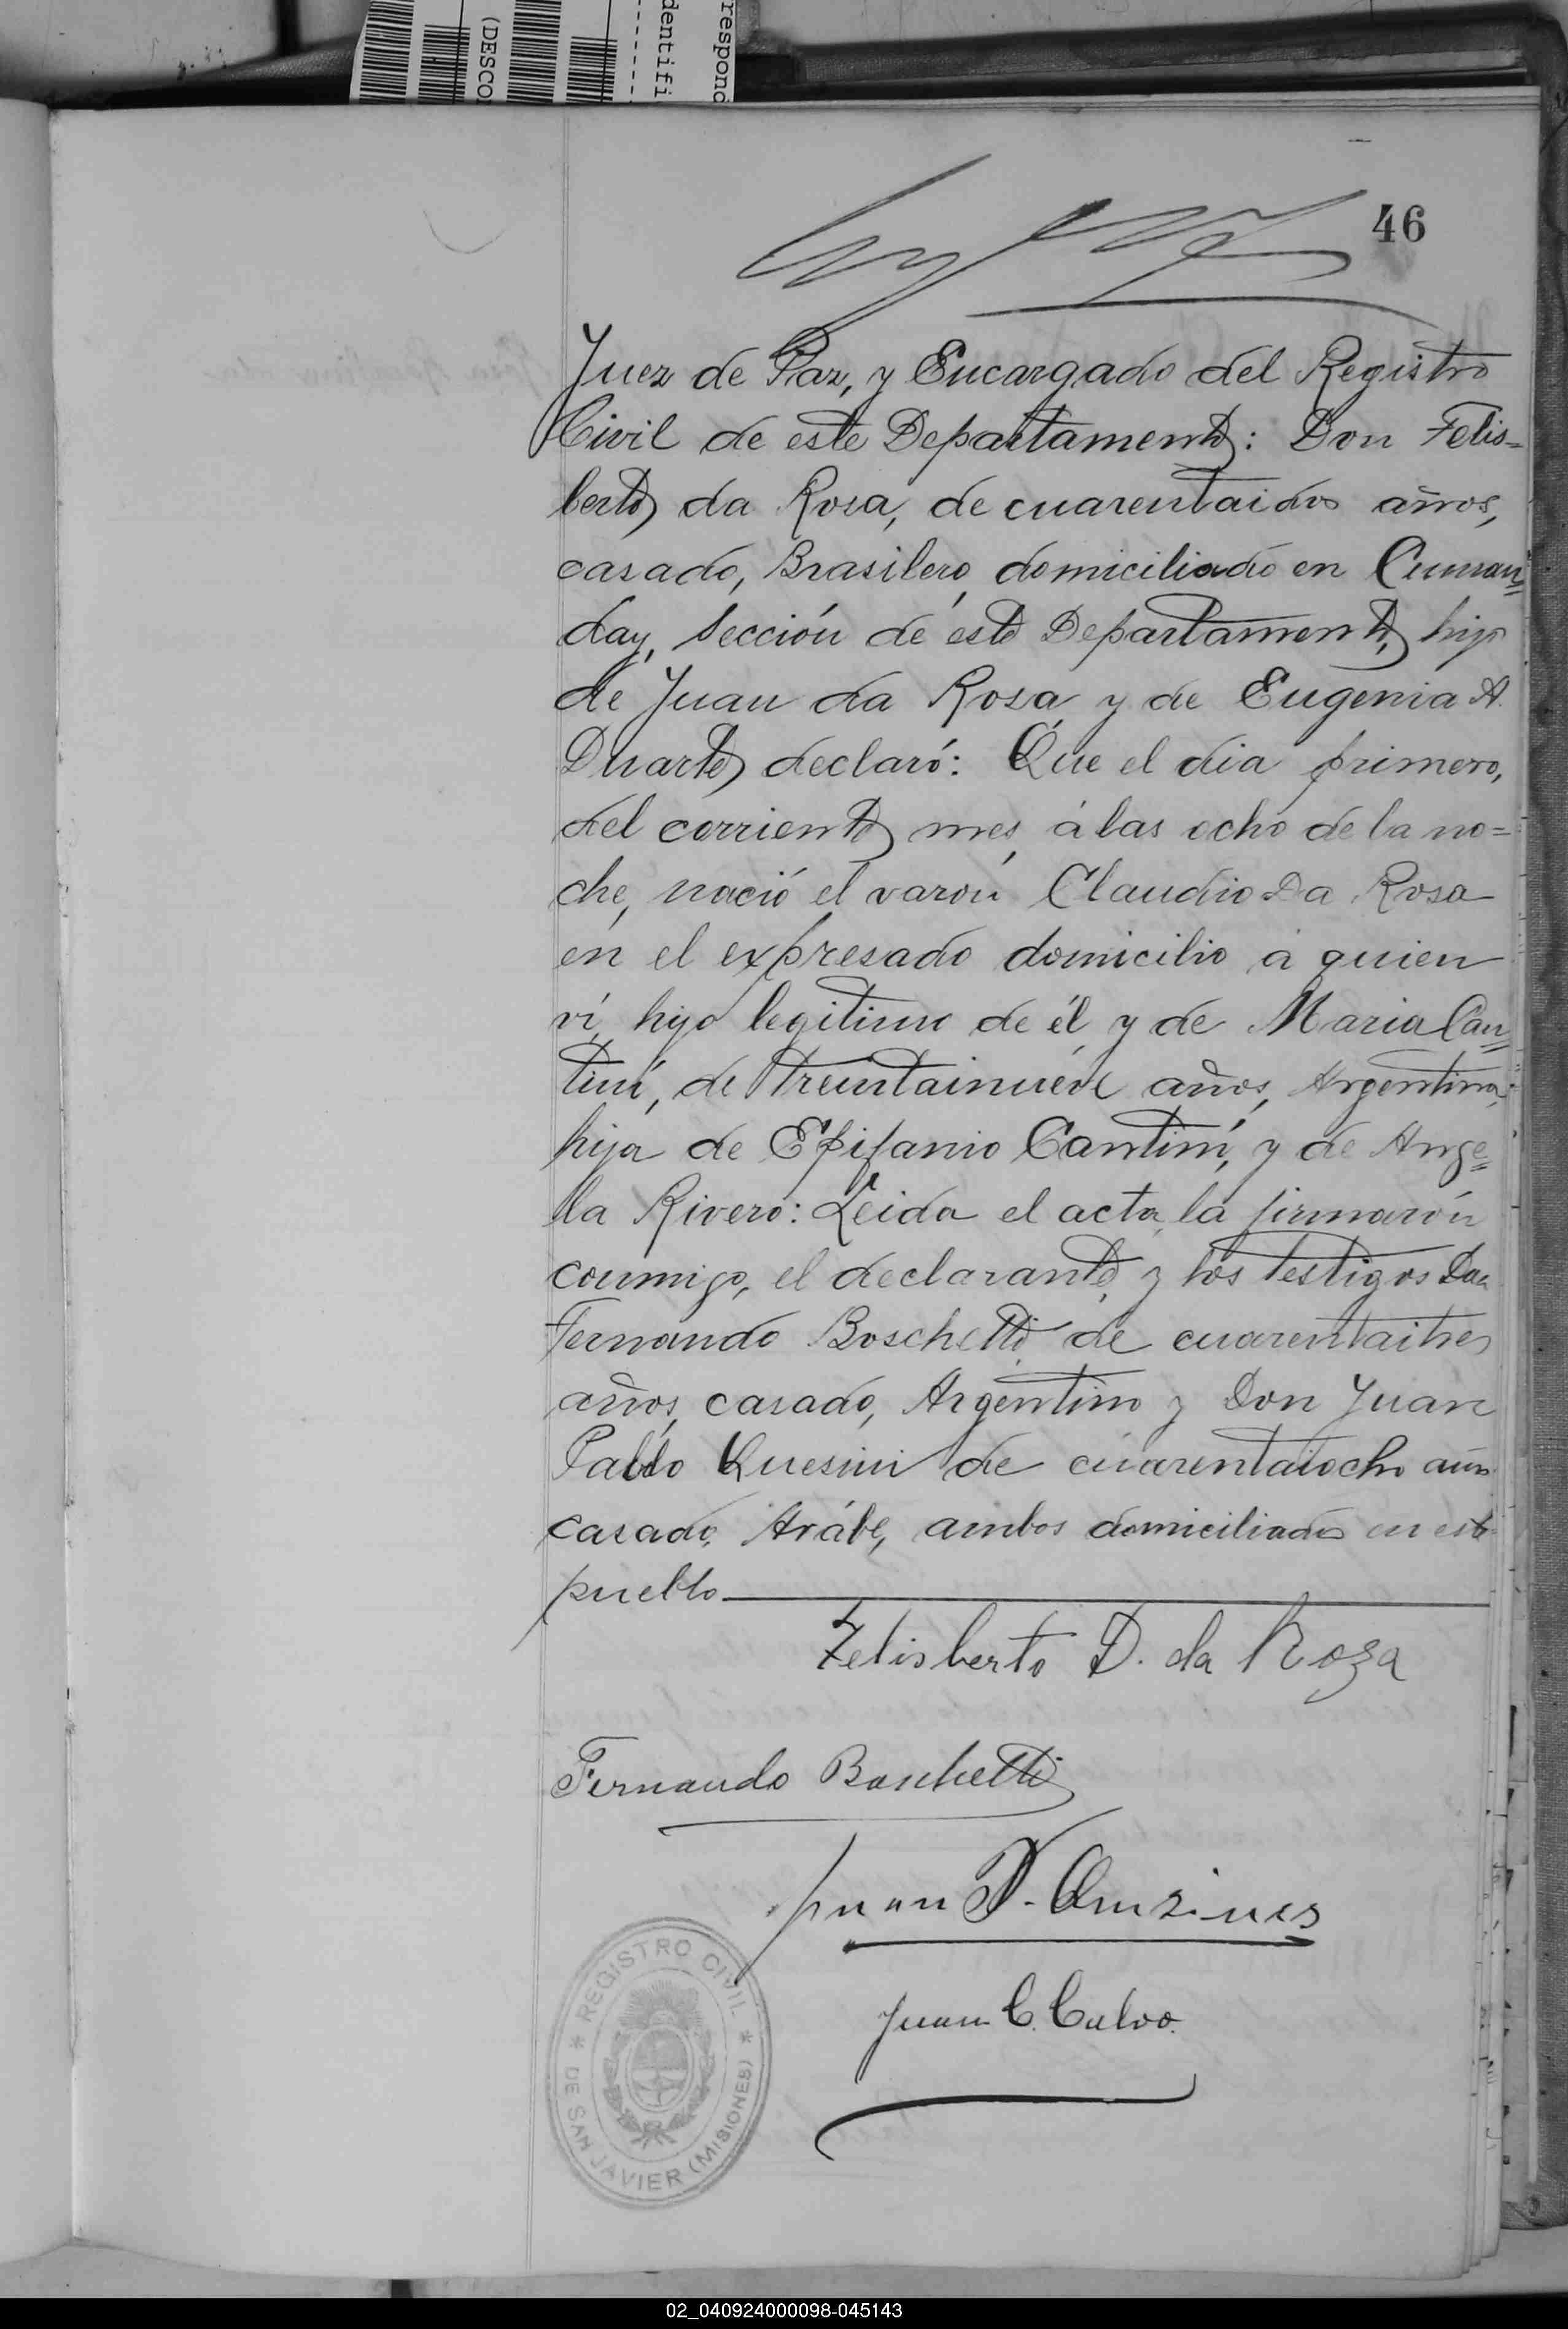 respond
dentifi
(DESCO
46
Juez de Paz, y Encargado del Registro
Civil de este Departamento: Don Felis=
berto da Rosa, de cuarentaidos años,
casado, Brasilero, domiciliado en Cuman=
day, Sección de este Departamento, hijo
de Juan da Rosa y de Eugenia A.
Duarte, declaró: Que el dia primero,
del corriente mes, á las ocho de la no=
che, nació el varón Claudio Da Rosa
en el expresado domicilio á quien
ví, hijo legitimo de él, y de Maria Can=
tiní, de treintainueve años, Argentina,
hija de Epifanio Cantiní, y de Ange=
la Rivero: Leida el acta, la firmarón
conmigo, el declarante, y los testigos Don
Fernando Boschetti de cuarentaitres
años, casado, Argentino y Don Juan
Pablo de cuarentaiocho años
casado, Arábe, ambos domiciliados en este
pueblo
Felisberto D. da Roza
Fernando Boschetti
Juan P.
Juan C. Calvo.
* REGISTRO CIVIL *
DE SAN JAVIER (MISIONES)
02_040924000098-045143